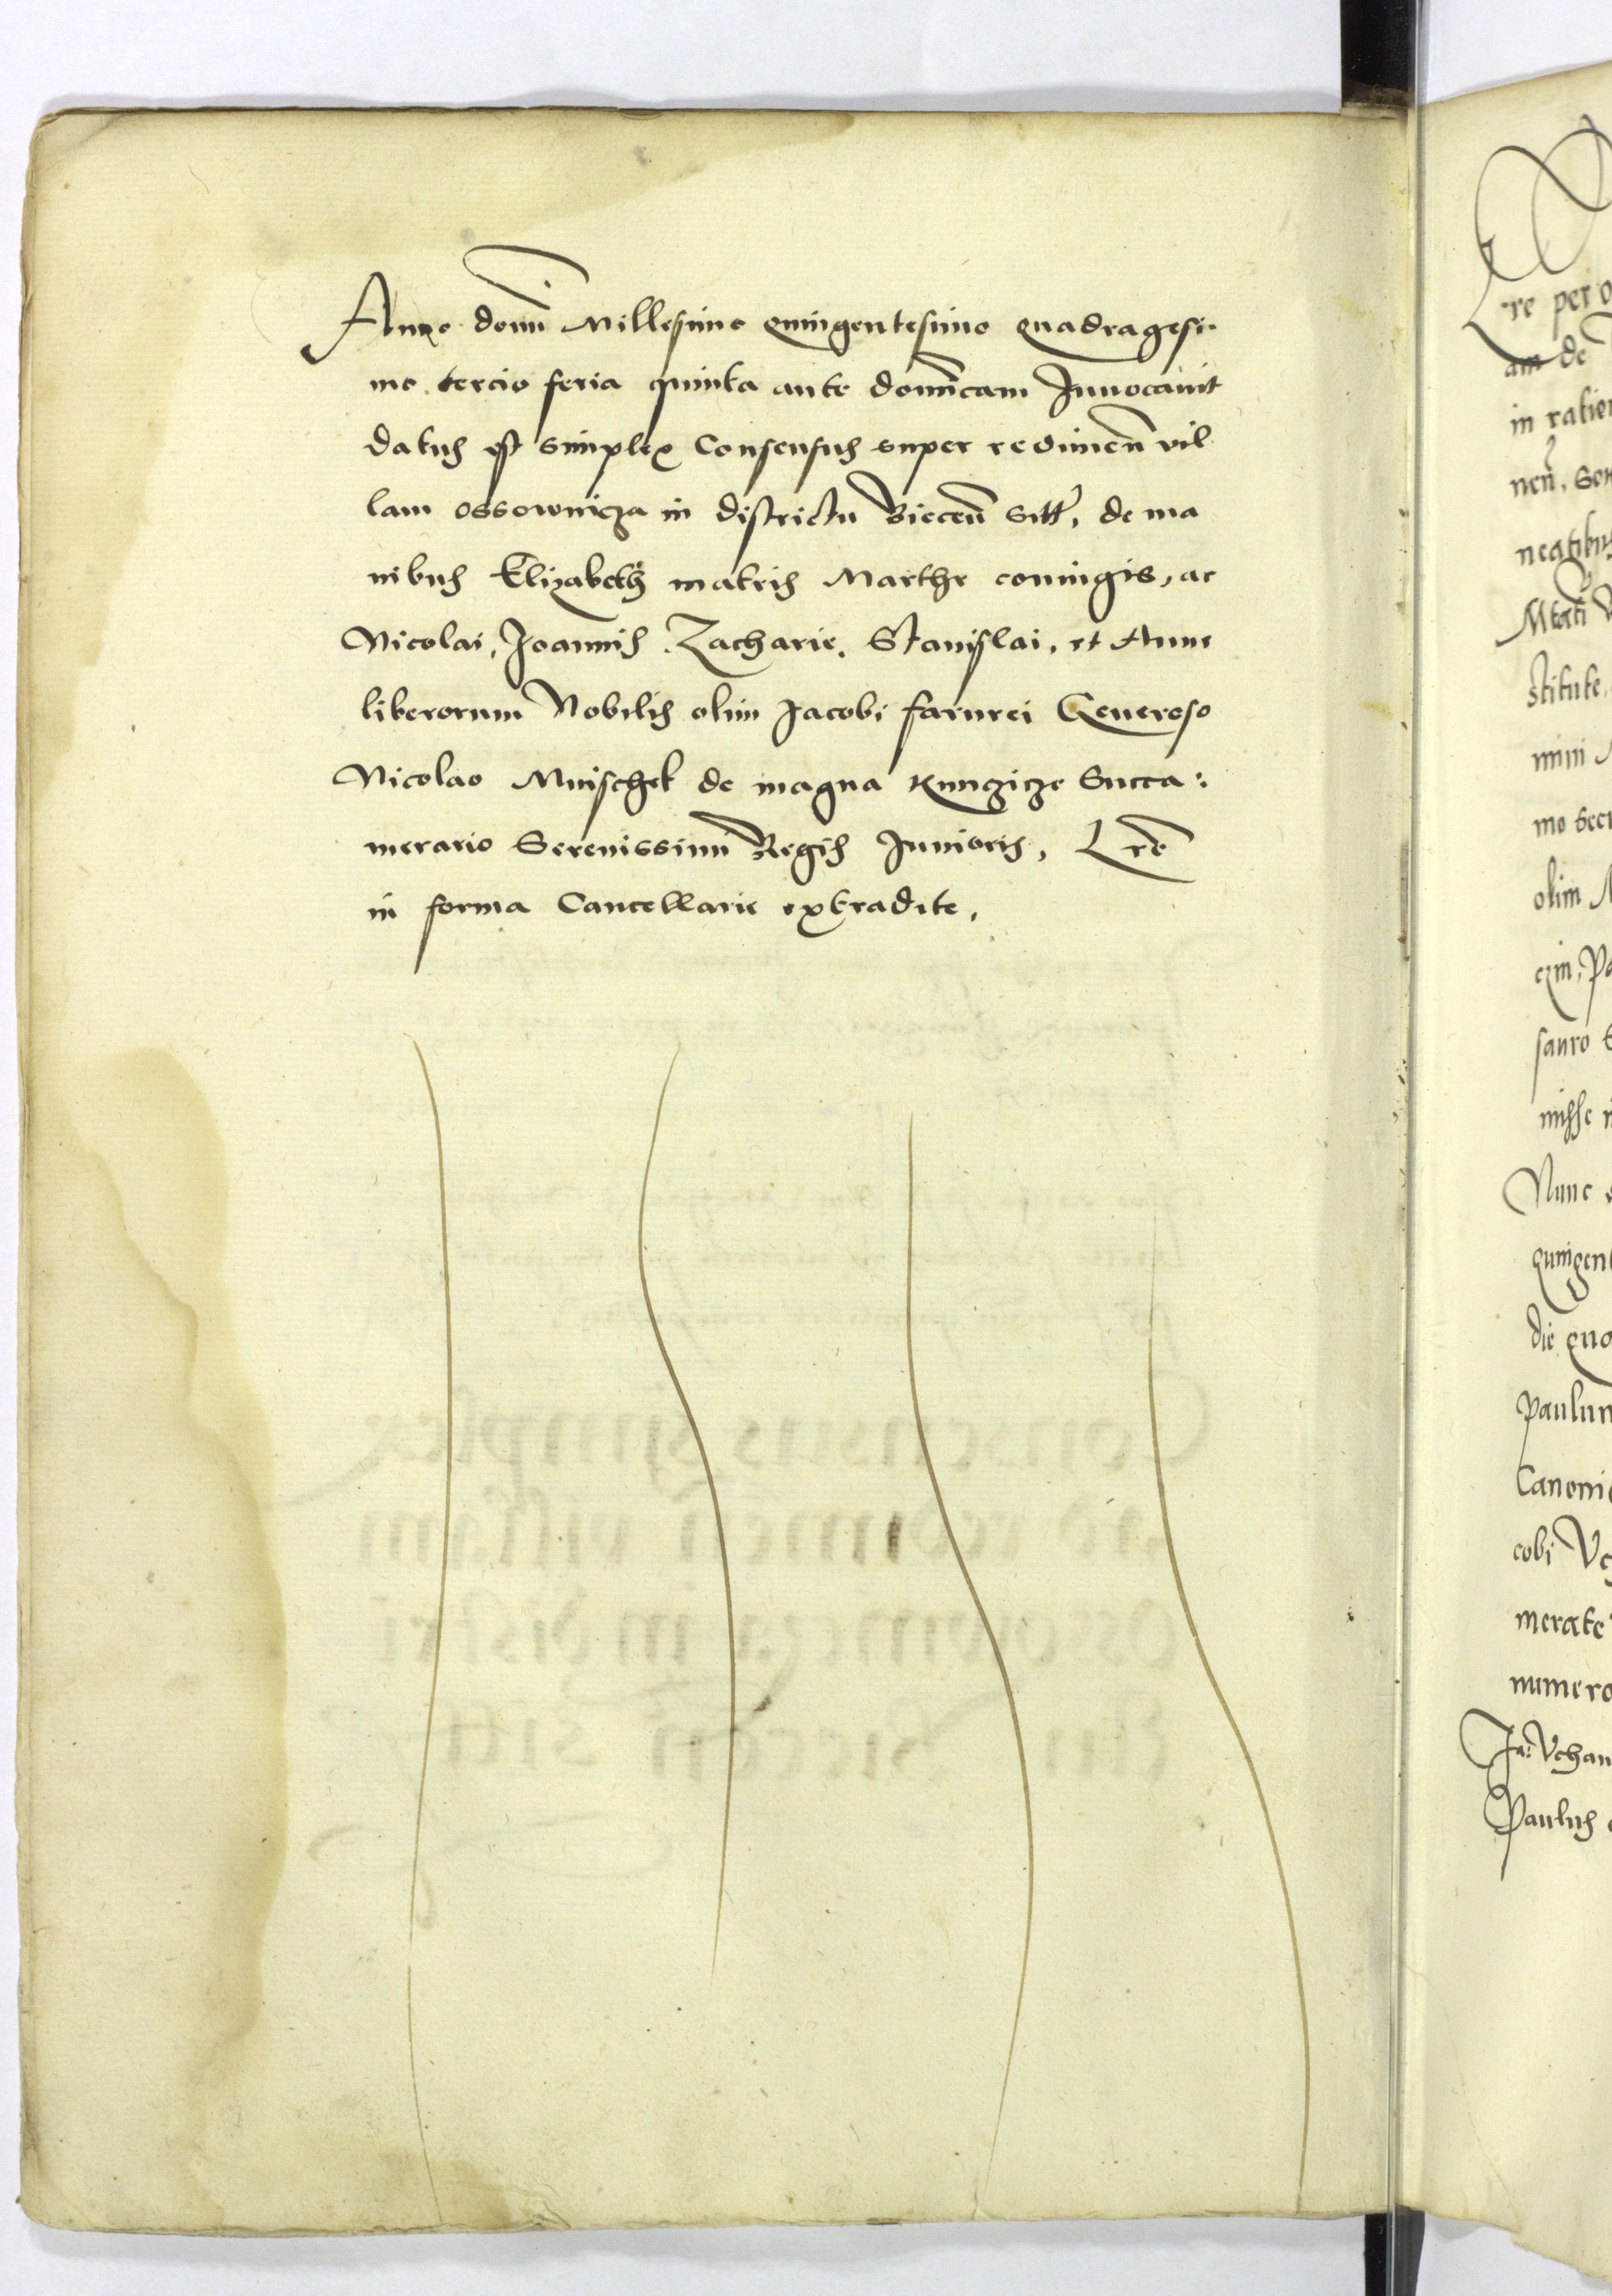 Anno domi Millesimo quingentesimo quadragesi-
mo tercio feria quinta ante dominicam Invocavit
datus est simplex Consensus super redimen vil
lam ossownicza in districtu Biecen sitt, de ma
nibus Elizabeth matris Marthe coniugis, ac
Nicolai, Joannis Zacharie, Stanislai, et Anne
liberorum Nobilis olim Jacobi farurei Generoso
Nicolao Mnischek de magna Kunczicze Succa:
merario Serenissimi Regis Junioris, Lre
in forma Cancellarie extradite,
re per o
am de
in ratio
nen, Som
neatibus
Mtati
stitute
mini
mo Secr
olim
czin, Pa
misse
Nunc
quingent
die qua
Paulum
Canoni
cobi
merate
numero
Ja: Vchan
Paulus